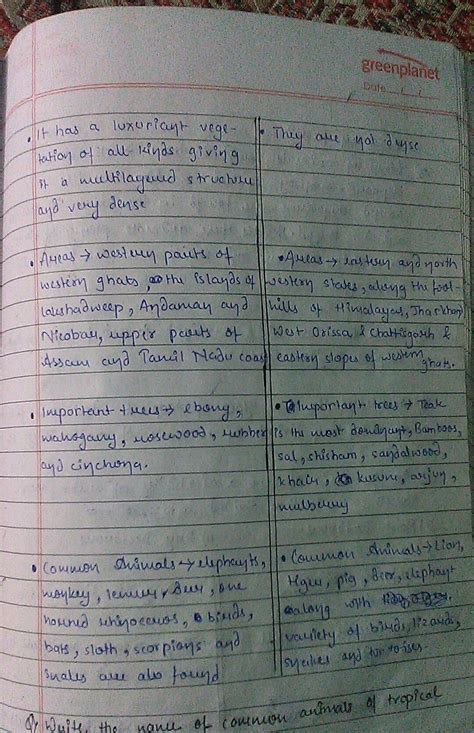 greenplanet
Date
• It has a luxuriant vege-
tation of all kinds giving
it a multilayered structure
and very dense
• They are not dense
• Areas → western parts of
western ghats, the islands of
lakshadweep, Andaman and
Nicobar, upper parts of
Assam and Tamil Nadu coast
• Areas → eastern and north
western states, along the foot
hills of Himalayas, Jharkhand
West Orissa & Chattisgarh &
eastern slopes of western
ghats.
• Important trees → ebony,
mahogany, rosewood, rubber
and cinchona.
• Important trees → Teak
is the most dominant, Bamboos,
sal, shisham, sandalwood,
khair, kusum, arjun,
mulberry
• Common Animals → elephants,
monkey, lemur, deer, one
horned rhinoceros, birds,
bats, sloth, scorpions and
snales are also found
• Common Animals → Lion,
tiger, pig, deer, elephant
along with
variety of birds, lizards,
snakes and tortoises.
Q: Write the name of common animals of tropical